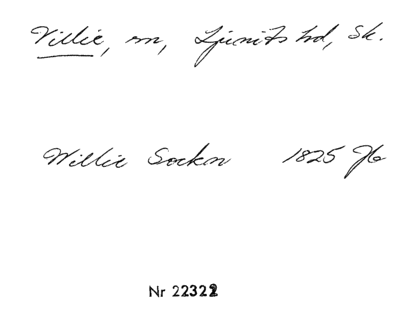 Villie, sn, Ljunits hd, Sk.
Willie Sockn 1825 Jb
Nr 22322